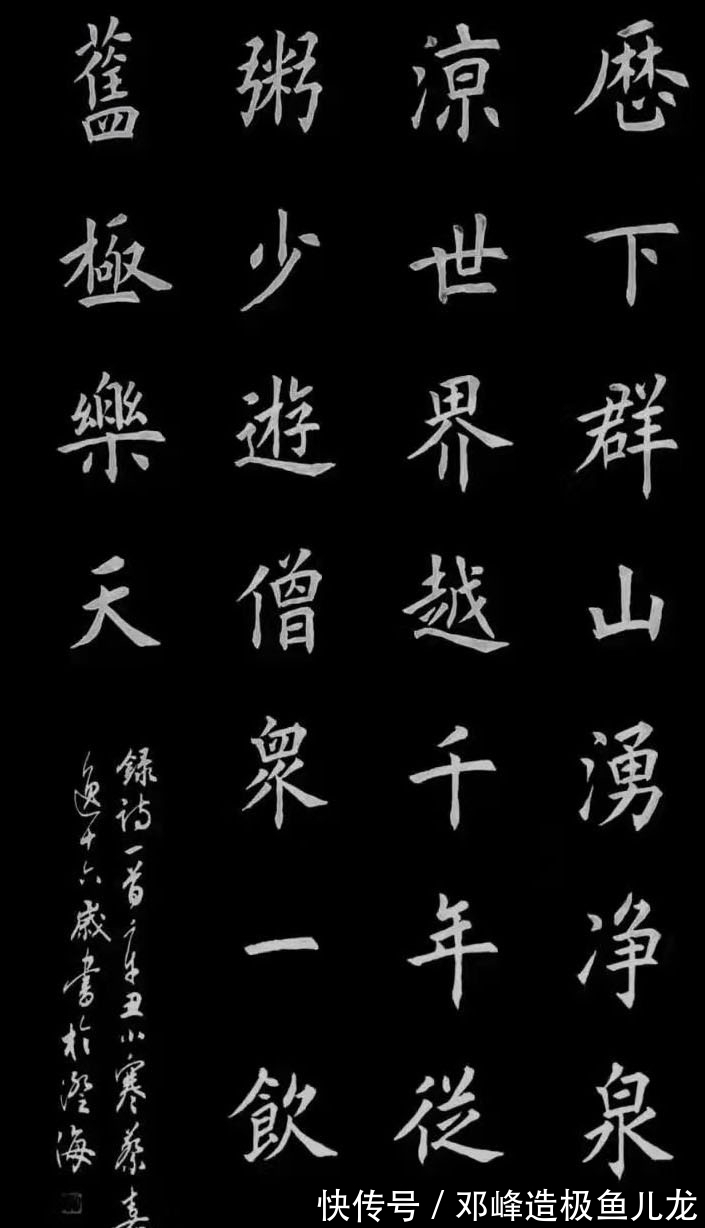 歷下群山湧净泉
涼世界越千年從
粥少遊僧眾一飲
舊極樂天
録詩一首辛丑小寒蔡
十六歲書於澄海
快传号/邓峰造极鱼儿龙